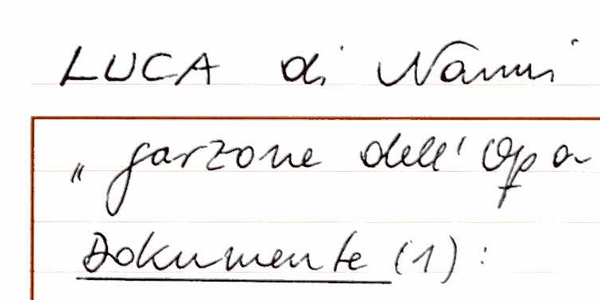 LUCA di Nanni
„ garzone dell' Opa
Dokumente (1) :